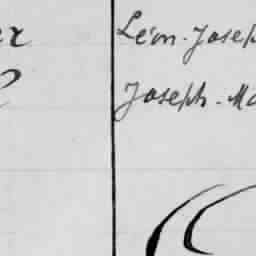 Léon-Joseph
Joseph-Ma